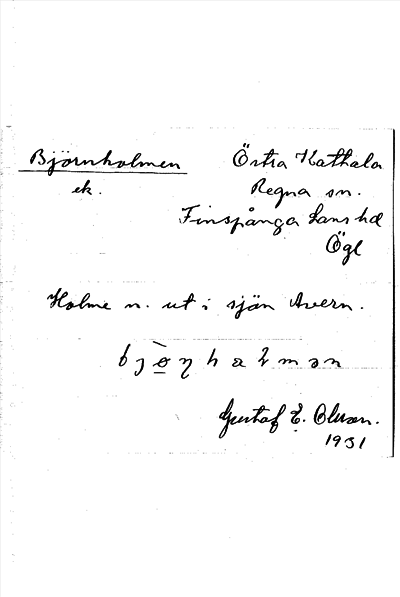 Björnholmen Östra Kathala
ek. Regna sn.
Finspånga läns hd
Ögl
Holme n. ut i sjän Avern.
Gustaf E. Olsson.
1931